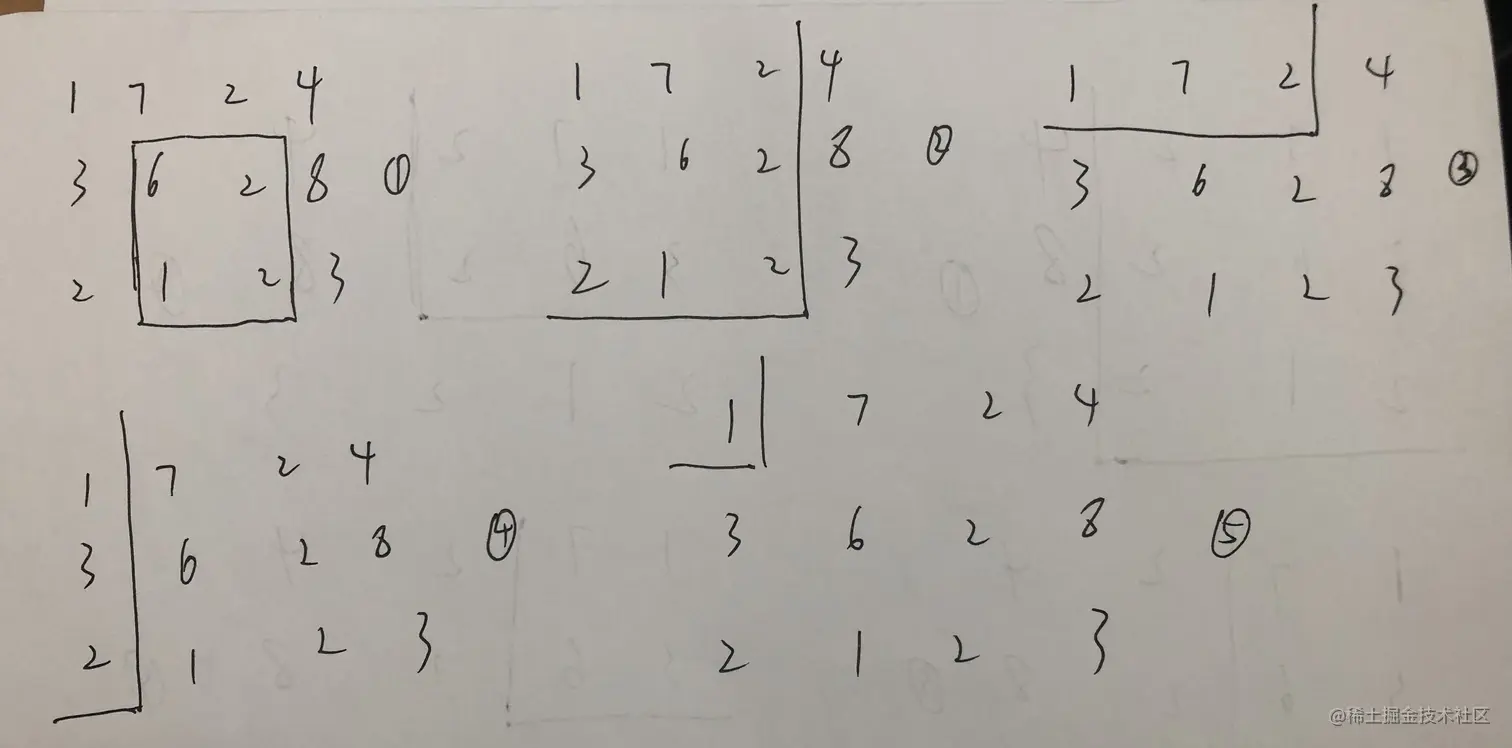 1 7 2 4
3 6 2 8 ①
2 1 2 3
1 7 2 4
3 6 2 8 ②
2 1 2 3
1 7 2 4
3 6 2 8 ③
2 1 2 3
1 7 2 4
3 6 2 8 ④
2 1 2 3
1 7 2 4
3 6 2 8 ⑤
2 1 2 3
@稀土掘金技术社区